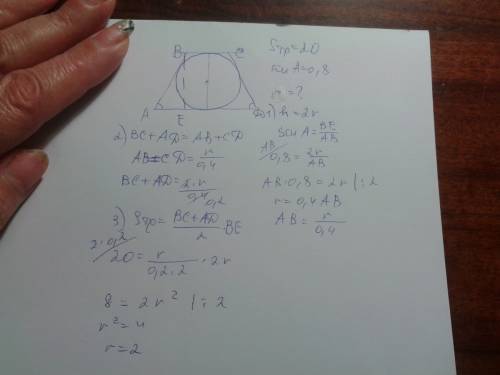 B C
A E D
Sтр=20
sin A=0,8
r=?
1) h=2r
sin A = BE/AB
0,8 = 2r/AB
AB·0,8 = 2r |:2
r=0,4 AB
AB = r/0,4
2) BC+AD=AB+CD
AB=CD=r/0,4
BC+AD=2·r/0,4 0,2
3) Sтр= BC+AD/2 ·BE
2·0,2
20= r/0,2·2 ·2r
8 = 2r² |:2
r²=4
r=2